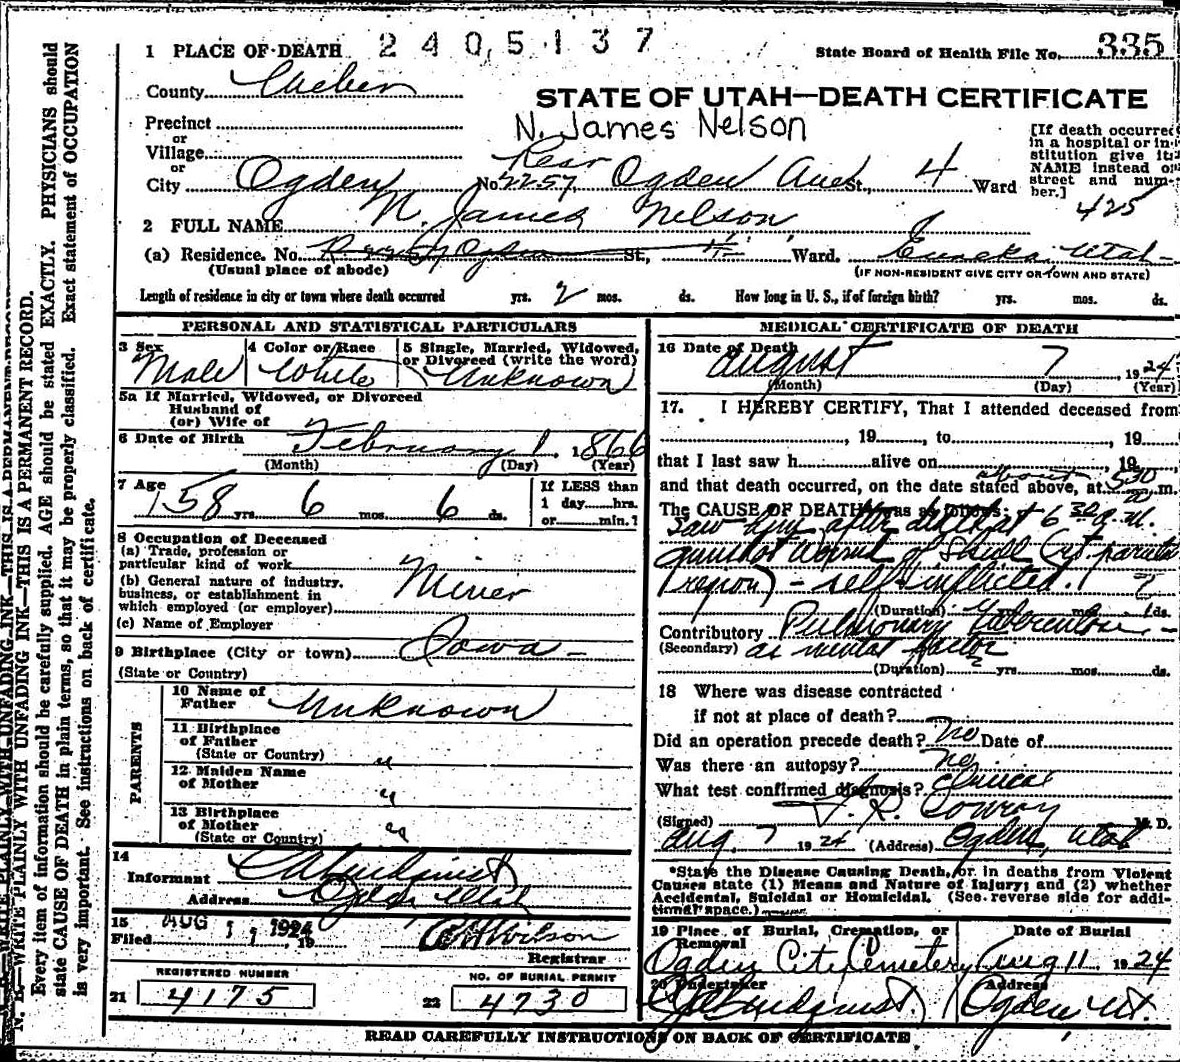 1 PLACE OF DEATH 2405137
State Board of Health File No. 335
County Weber
STATE OF UTAH—DEATH CERTIFICATE
N. James Nelson
Precinct
or
Village
or
City Ogden No. Rear 2257 Ogden Ave St., 4 Ward
[If death occurred in a hospital or institution give its NAME instead of street and number.]
425
2 FULL NAME N. James Nelson
(a) Residence. No. R 2257 Ogden St., 4 Ward. Eureka, Utah
(Usual place of abode)
(IF NON-RESIDENT GIVE CITY OR TOWN AND STATE)
Length of residence in city or town where death occurred yrs. 2 mos. ds. How long in U. S., if of foreign birth? yrs. mos. ds.
PERSONAL AND STATISTICAL PARTICULARS
3 Sex Male
4 Color or Race White
5 Single, Married, Widowed, or Divorced (write the word) Unknown
5a If Married, Widowed, or Divorced
Husband of
(or) Wife of
6 Date of Birth February 1, 1866
(Month) (Day) (Year)
7 Age 58 yrs. 6 mos. 6 ds.
If LESS than
1 day......hrs.
or......min.?
8 Occupation of Deceased
(a) Trade, profession or
particular kind of work Miner
(b) General nature of industry,
business, or establishment in
which employed (or employer)
(c) Name of Employer
9 Birthplace (City or town) Iowa
(State or Country)
PARENTS
10 Name of Father Unknown
11 Birthplace of Father (State or Country) "
12 Maiden Name of Mother "
13 Birthplace of Mother (State or Country) "
14
Informant
Address Ogden Utah
15
Filed AUG 11 1924, 19
Wilson
Registrar
REGISTERED NUMBER
21 4175
NO. OF BURIAL PERMIT
22 4730
MEDICAL CERTIFICATE OF DEATH
16 Date of Death August 7, 1924
(Month) (Day) (Year)
17. I HEREBY CERTIFY, That I attended deceased from
, 19 , to , 19
that I last saw h alive on , 19
and that death occurred, on the date stated above, at about 530 a m.
The CAUSE OF DEATH was as follows:
Saw him after death at 6 30 a.m.
gunshot wound of skull (rt. parietal
region) - self-inflicted.
(Duration) yrs. mos. ds.
Contributory Pulmonary Tuberculosis -
(Secondary) as mental factor
(Duration) yrs. mos. ds.
18 Where was disease contracted
if not at place of death?
Did an operation precede death? no Date of
Was there an autopsy? no
What test confirmed diagnosis? Clinical
(Signed) Conroy M. D.
Aug 7 1924 (Address) Ogden, Utah
*State the Disease Causing Death, or in deaths from Violent
Causes state (1) Means and Nature of Injury; and (2) whether
Accidental, Suicidal or Homicidal. (See reverse side for addi-
tional space.)
19 Place of Burial, Cremation, or Removal
Ogden City Cemetery
Date of Burial
Aug 11 1924
20 Undertaker
Address
Ogden Ut.
READ CAREFULLY INSTRUCTIONS ON BACK OF CERTIFICATE
N. B.—WRITE PLAINLY WITH UNFADING INK—THIS IS A PERMANENT RECORD.
Every item of information should be carefully supplied. AGE should be stated EXACTLY. PHYSICIANS should
state CAUSE OF DEATH in plain terms, so that it may be properly classified. Exact statement of OCCUPATION
is very important. See instructions on back of certificate.